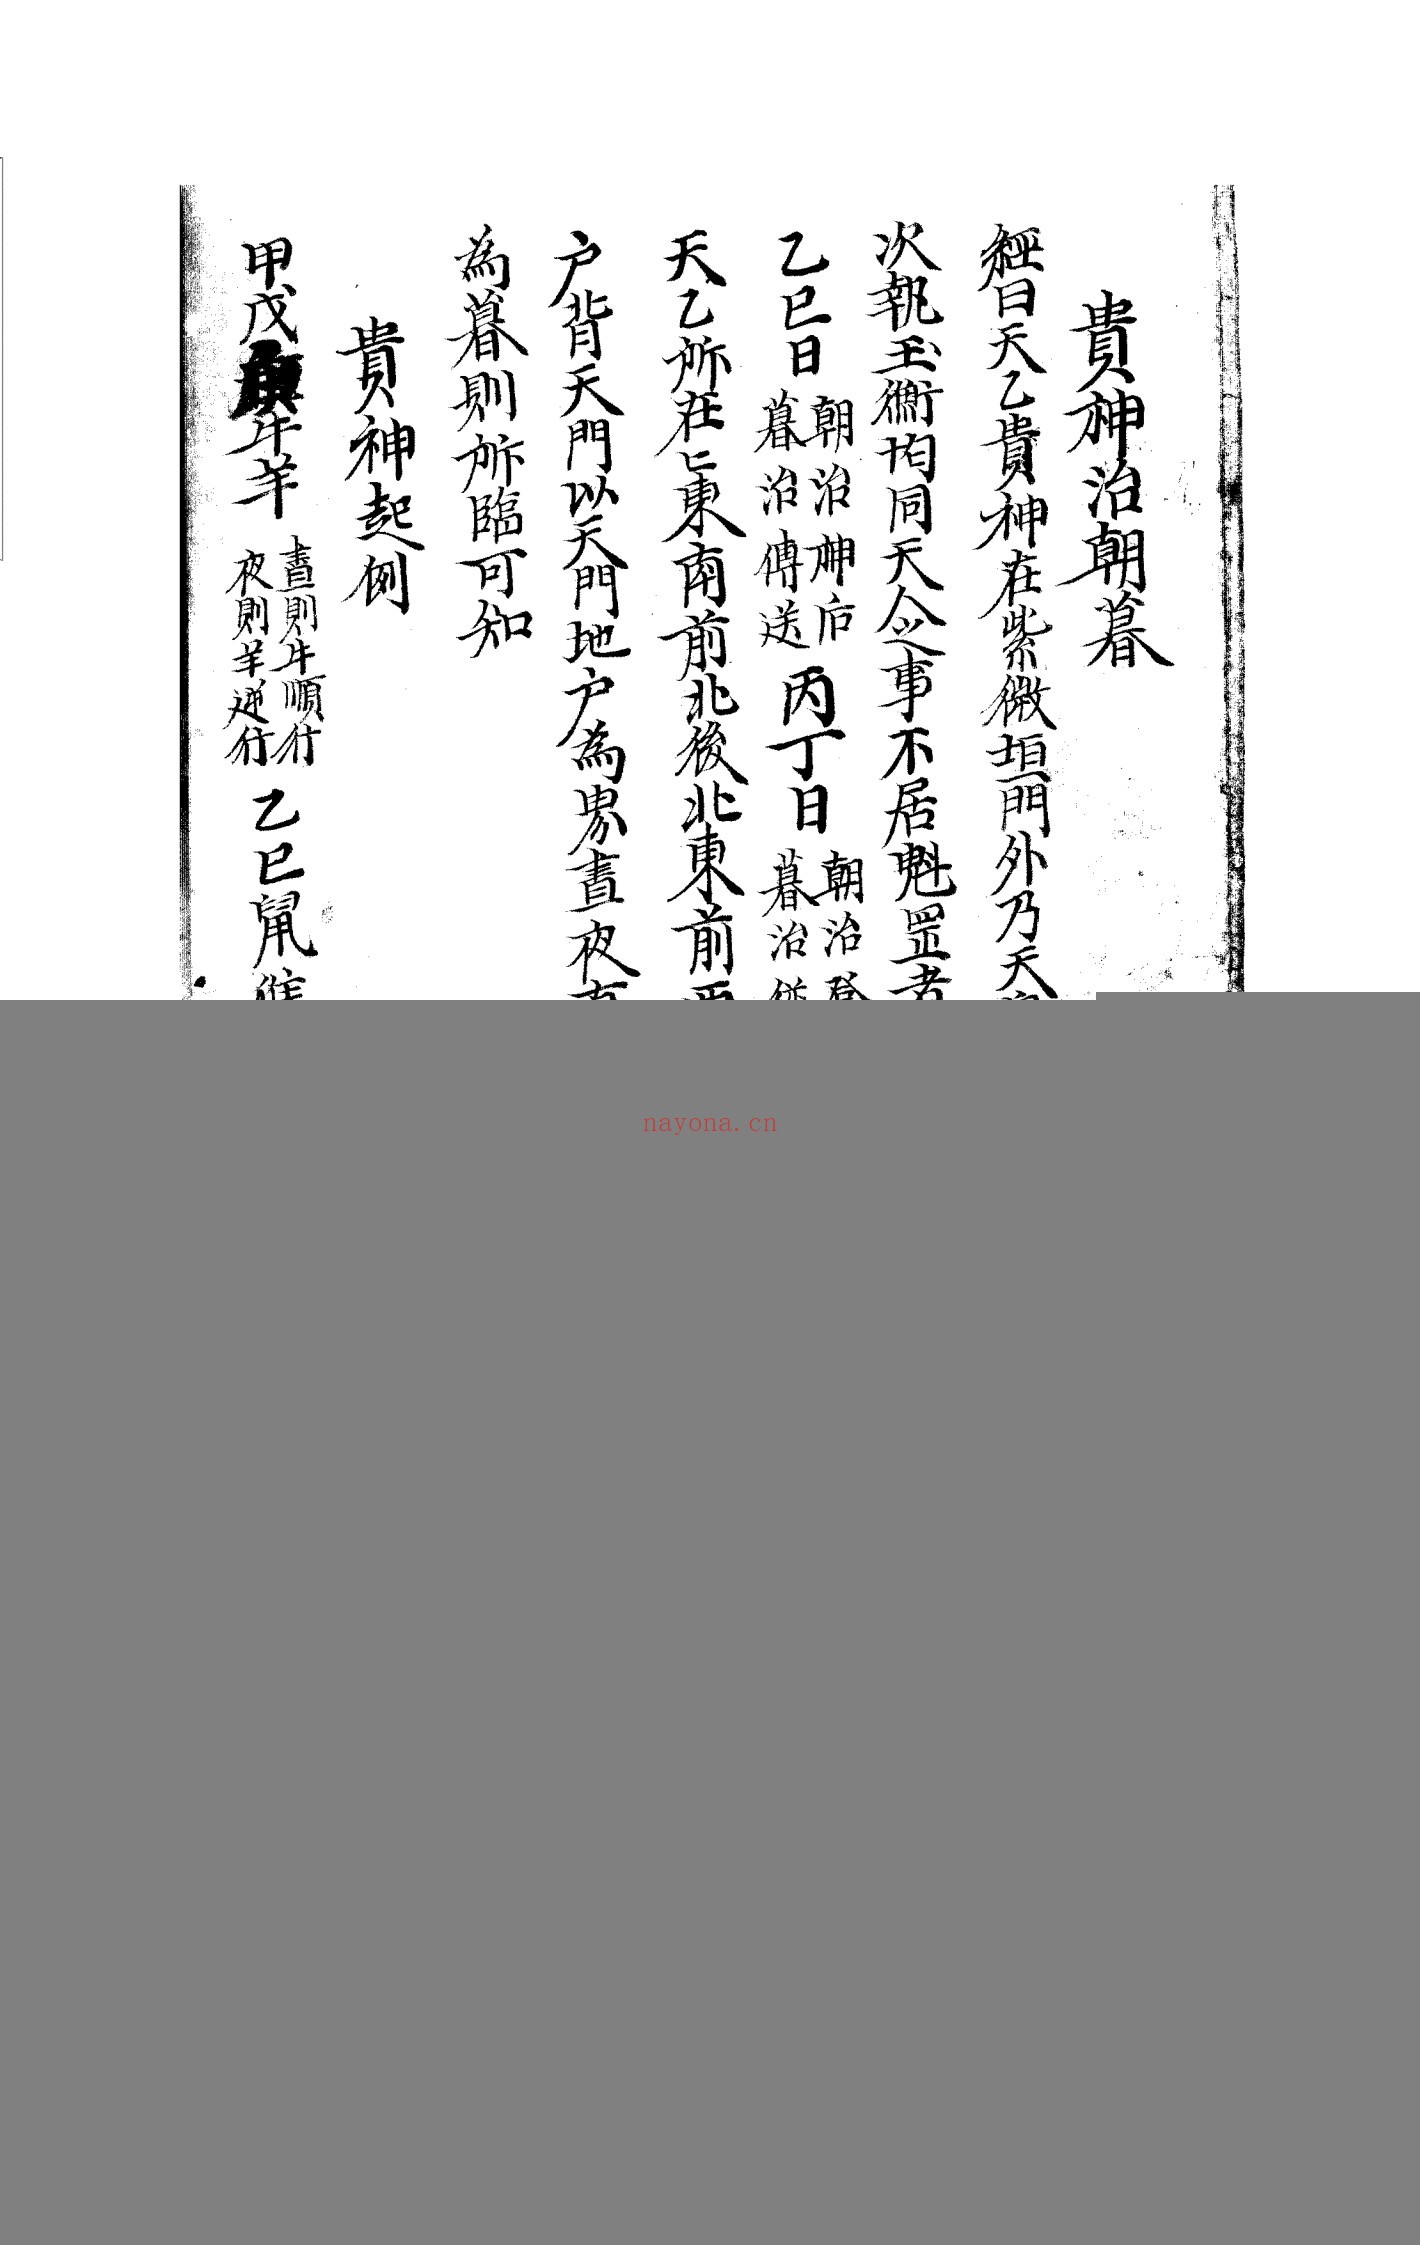 貴神治朝暮
經曰天乙貴神在紫微垣門外乃天
次執玉衡均同天人之事不居魁罡者
乙巳日 朝治神后 暮治傳送 丙丁日 朝治登 暮治
天乙所在已東南前北後北東前西
户背天門以天門地户為界晝夜有
為暮則所臨可知
貴神起例
甲戊庚牛羊 晝則牛順行 夜則羊逆行 乙巳鼠
nayona.cn